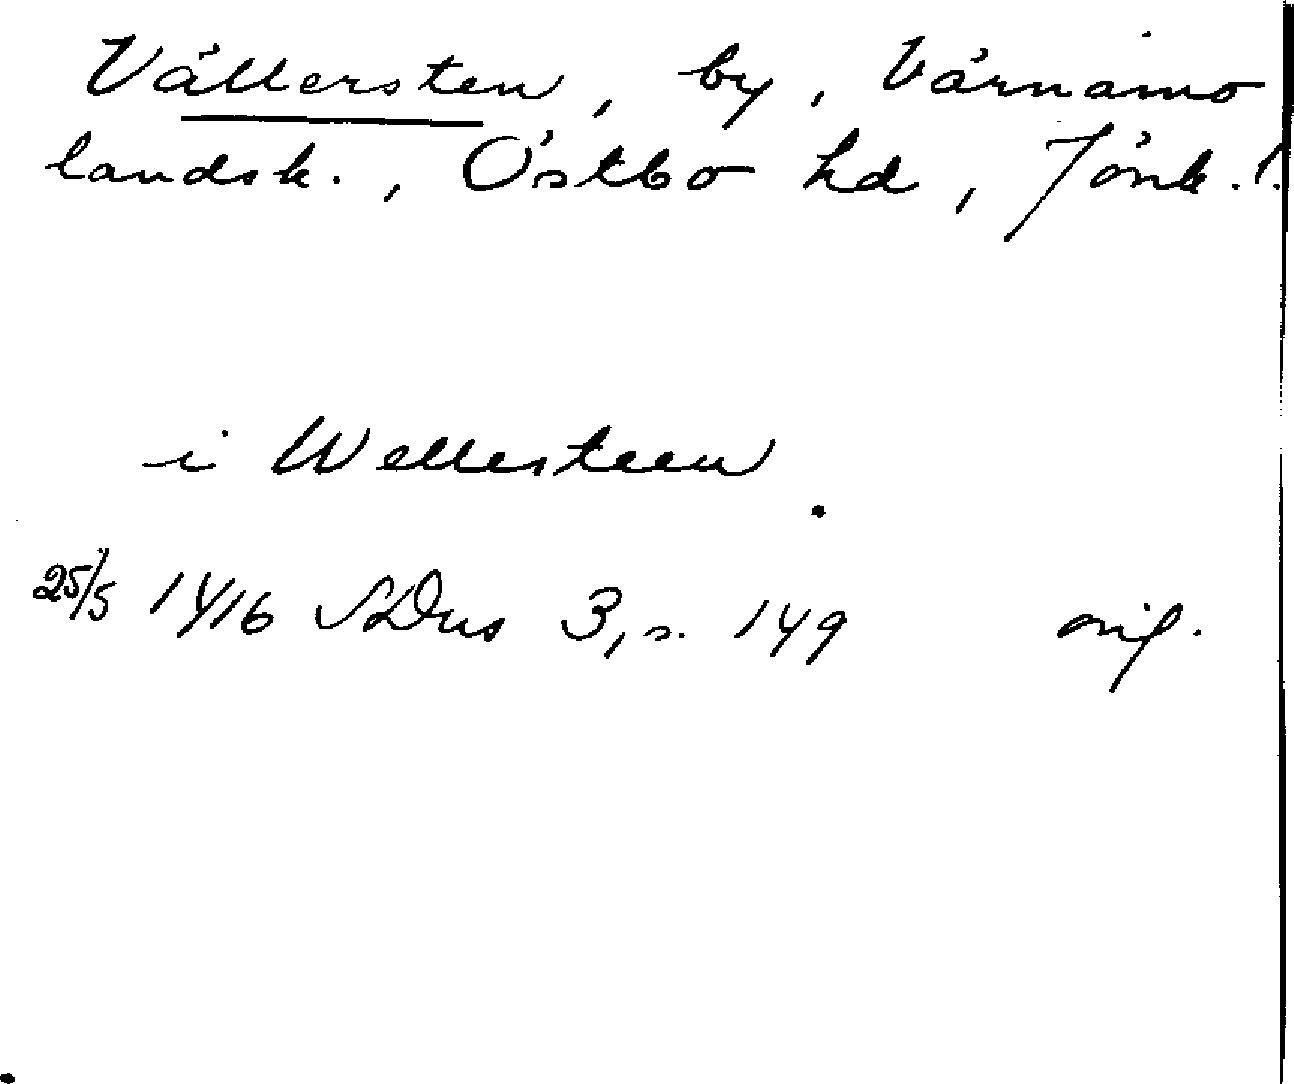 Vällersten, by, Värnamo
landsk., Östbo hd, Jönk. l.
i Wellersteen
25/5 1416 SDns 3, s. 149 orig.